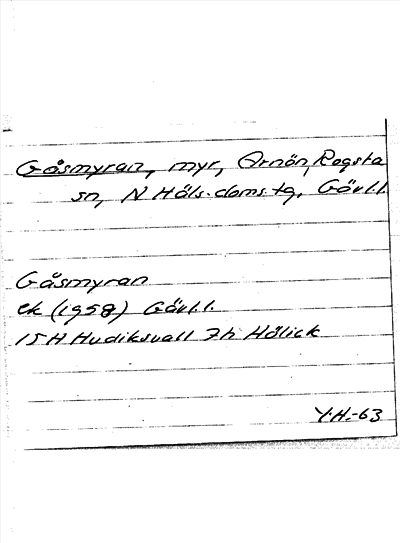 Gåsmyran, myr, Arnön, Rogsta
sn, N Häls. doms.-tg, Gävl.l.
Gåsmyran
ek (1958) Gävl.l.
15H Hudiksvall 7h Hölick
Y.H.-63